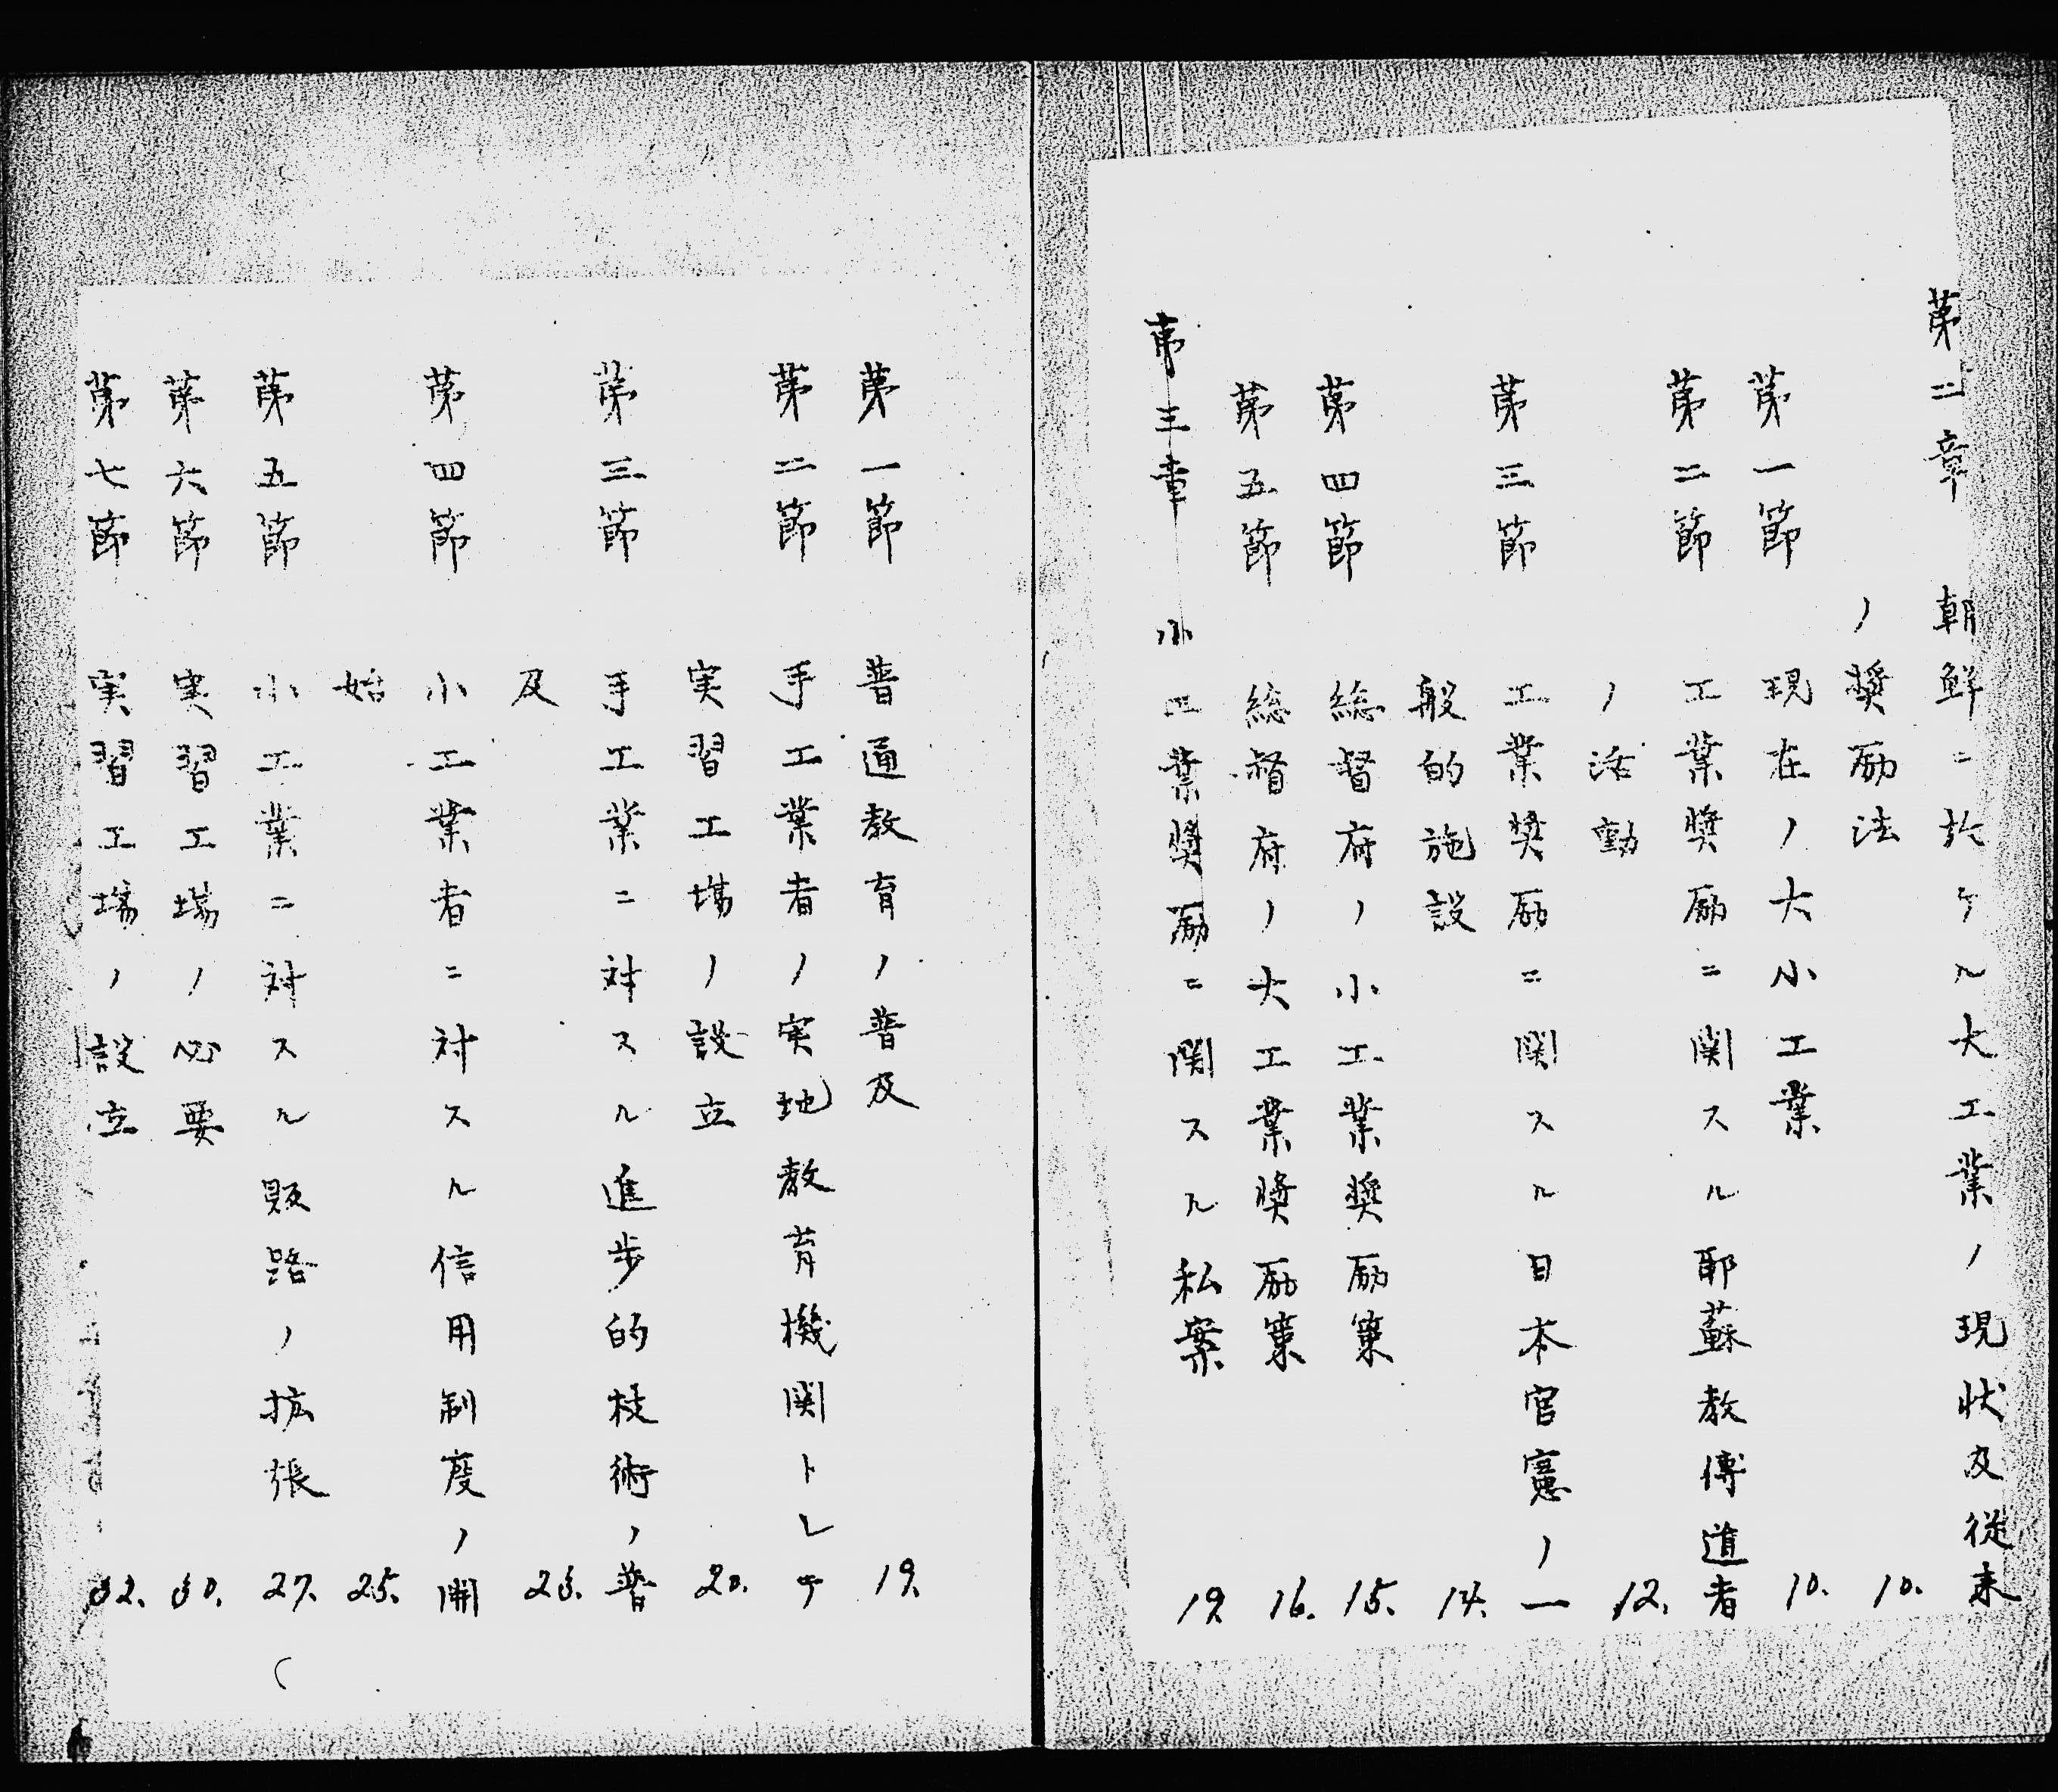 第二章 朝鮮ニ於ケル大工業ノ現状及従来
ノ奨励法 10.
第一節 現在ノ大小工業 10.
第二節 工業奨励ニ関スル耶蘇教傳道者
ノ活動 12.
第三節 工業奨励ニ関スル日本官憲ノ一
般的施設 14.
第四節 総督府ノ小工業奨励策 15.
第五節 総督府ノ大工業奨励策 16.
第三章 小工業奨励ニ関スル私案 19.
第一節 普通教育ノ普及 19.
第二節 手工業者ノ実地教育機関トシテ
実習工場ノ設立 20.
第三節 手工業ニ対スル進歩的技術ノ普
及 23.
第四節 小工業者ニ対スル信用制度ノ開
始 25.
第五節 小工業ニ対スル販路ノ拡張 27.
第六節 実習工場ノ必要 30.
第七節 実習工場ノ設立 32.